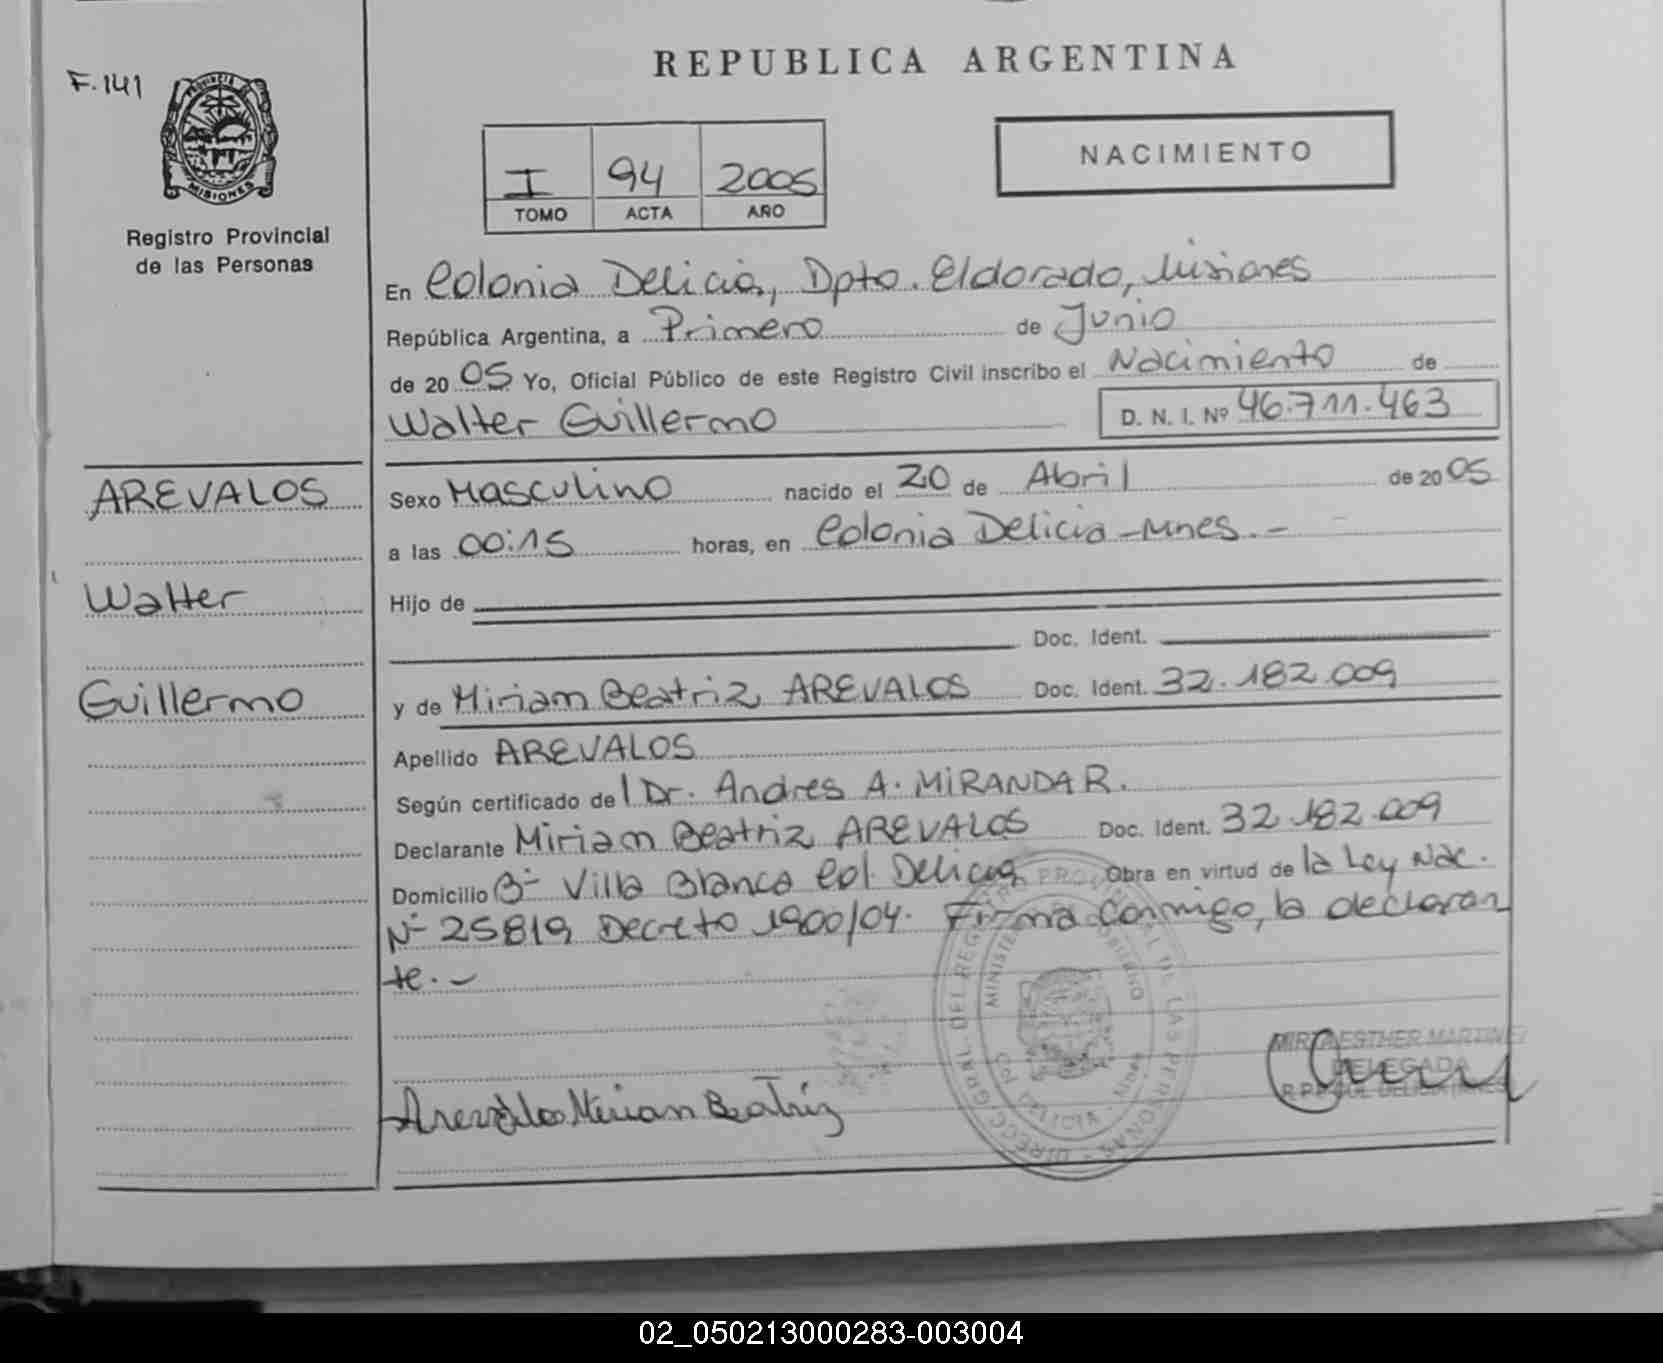 REPUBLICA ARGENTINA
F.141
PROVINCIA DE
MISIONES
Registro Provincial
de las Personas
I 94 2005
TOMO ACTA AÑO
NACIMIENTO
En Colonia Delicia, Dpto. Eldorado, Misiones
República Argentina, a Primero de Junio
de 20 05 Yo, Oficial Público de este Registro Civil inscribo el Nacimiento de
Walter Guillermo D. N. I. Nº 46.711.463
AREVALOS
Walter
Guillermo
Sexo Masculino nacido el 20 de Abril de 20 05
a las 00:15 horas, en Colonia Delicia -Mnes.-
Hijo de
Doc. Ident.
y de Miriam Beatriz AREVALOS Doc. Ident. 32.182.009
Apellido AREVALOS
Según certificado del Dr. Andres A. MIRANDA R.
Declarante Miriam Beatriz AREVALOS Doc. Ident. 32.182.009
Domicilio Bº Villa Blanca Col. Delicia Obra en virtud de la Ley Nac.
Nº 25819 Decreto 1900/04. Firma conmigo, la declaran
te.-
Arevalos Mirian Beatriz
DIRECC. GRAL. DEL REG. PROV. DE LAS PERSONAS
COL. DELICIA - Mnes
MIRTA ESTHER MARTINEZ
DELEGADA
02_050213000283-003004